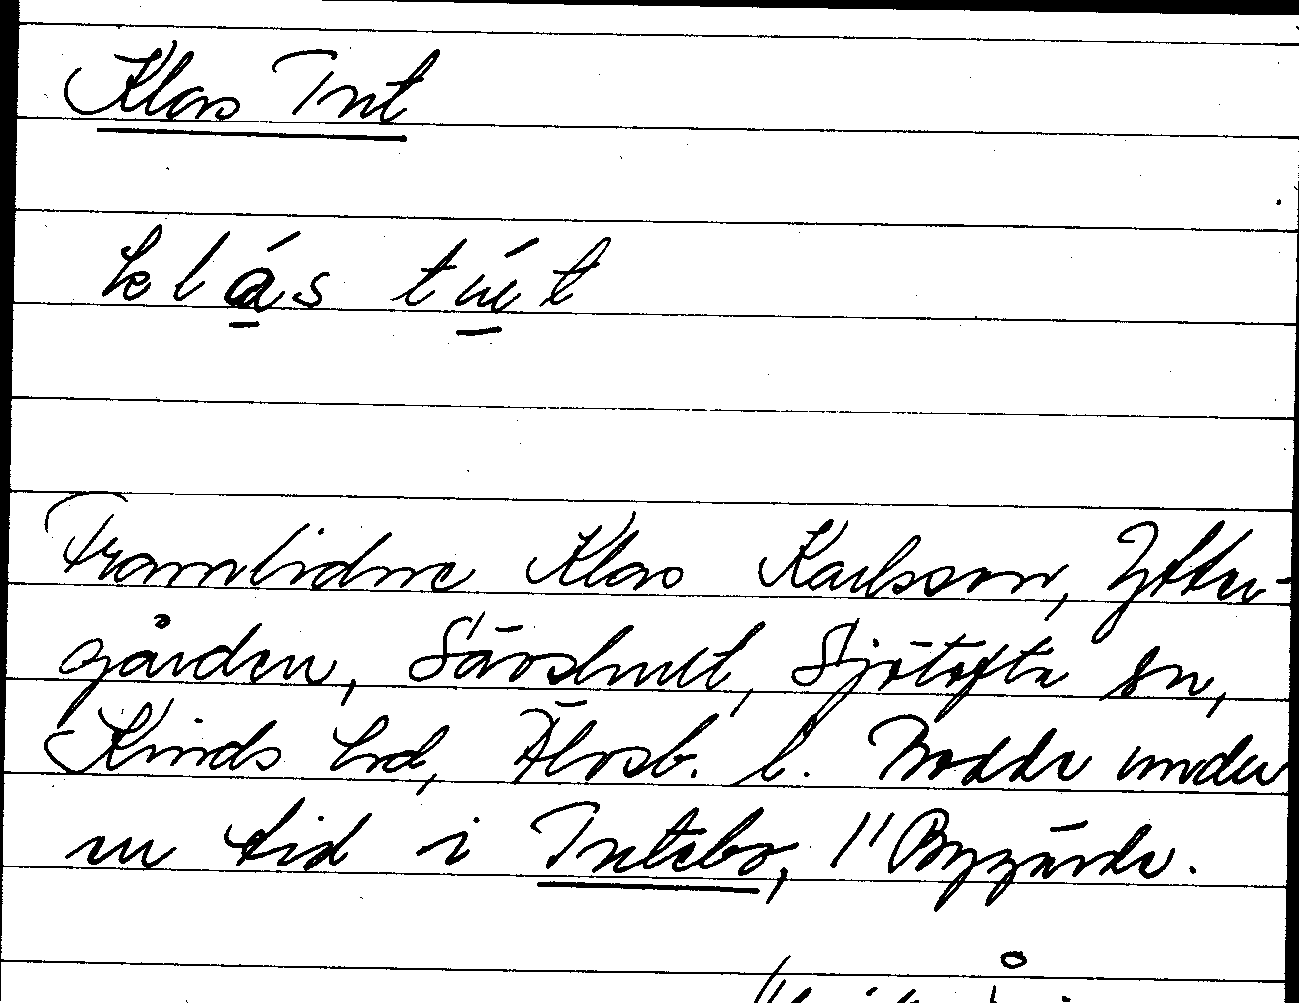 Klas Tut
klás tút
Framlidne Klas Karlsson, Ytter-
gården, Sävshult, Sjötofta sn,
Kinds hd, Älvsb. l. Bodde under
en tid i Tutebo,